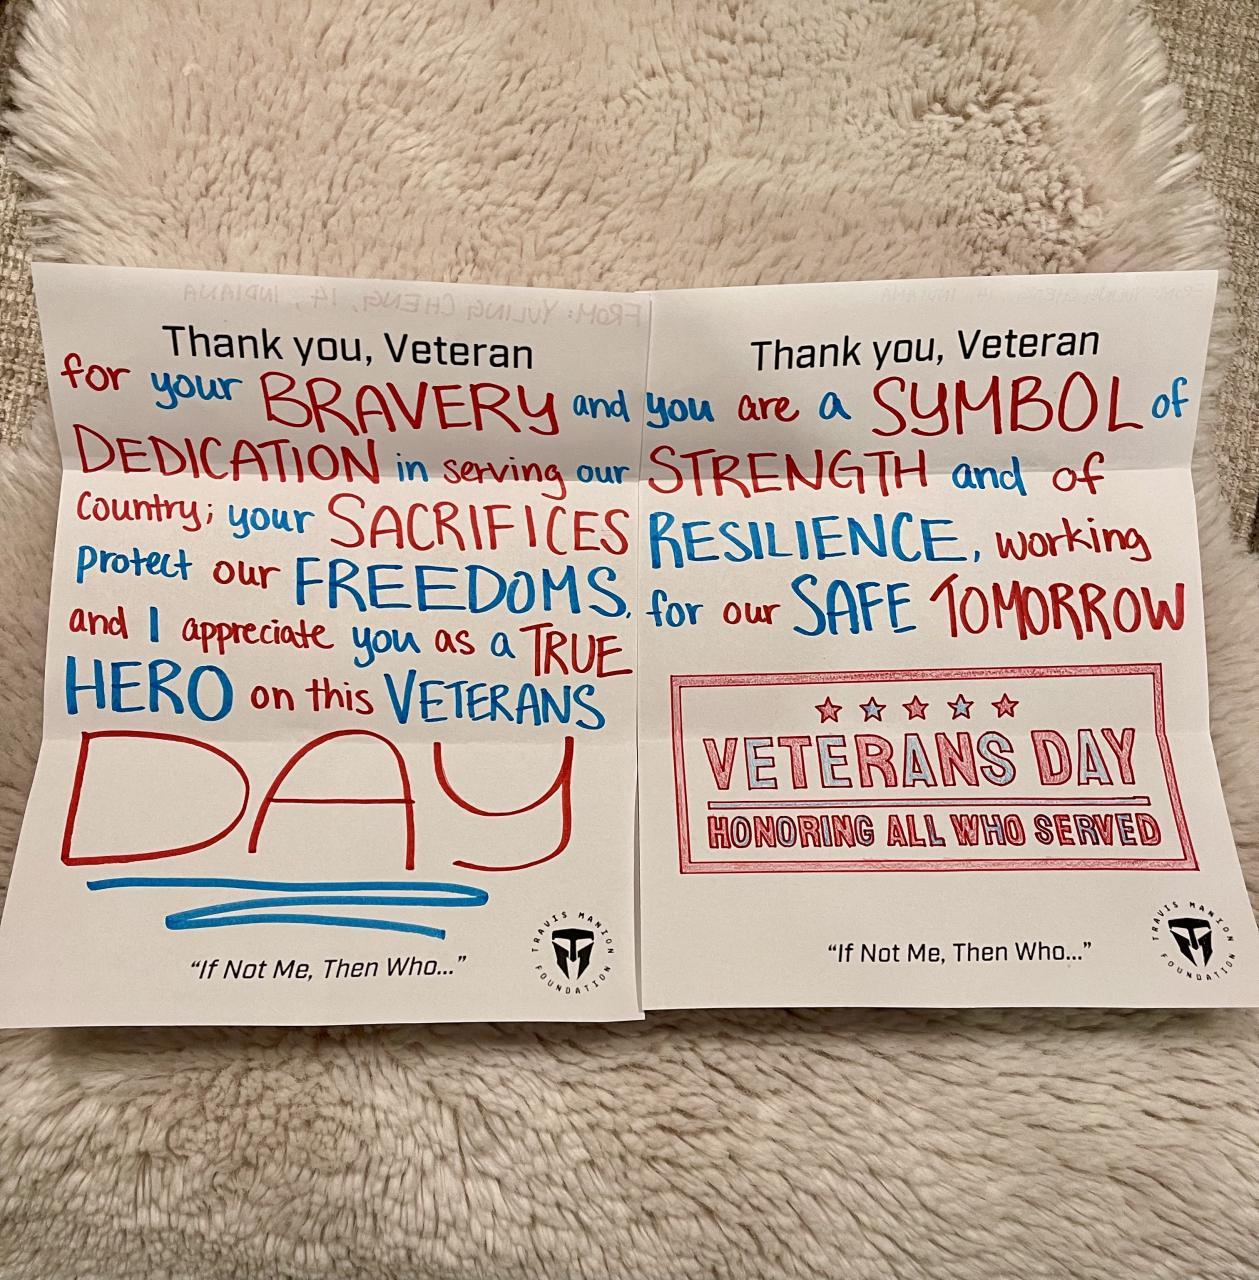 FROM: YULING CHENG, 14, INDIANA
Thank you, Veteran
for your BRAVERY and
DEDICATION in serving our
country; your SACRIFICES
protect our FREEDOMS,
and I appreciate you as a TRUE
HERO on this VETERANS
DAY
“If Not Me, Then Who...”
TRAVIS MANION
FOUNDATION
Thank you, Veteran
you are a SYMBOL of
STRENGTH and of
RESILIENCE, working
for our SAFE TOMORROW
VETERANS DAY
HONORING ALL WHO SERVED
“If Not Me, Then Who...”
TRAVIS MANION
FOUNDATION